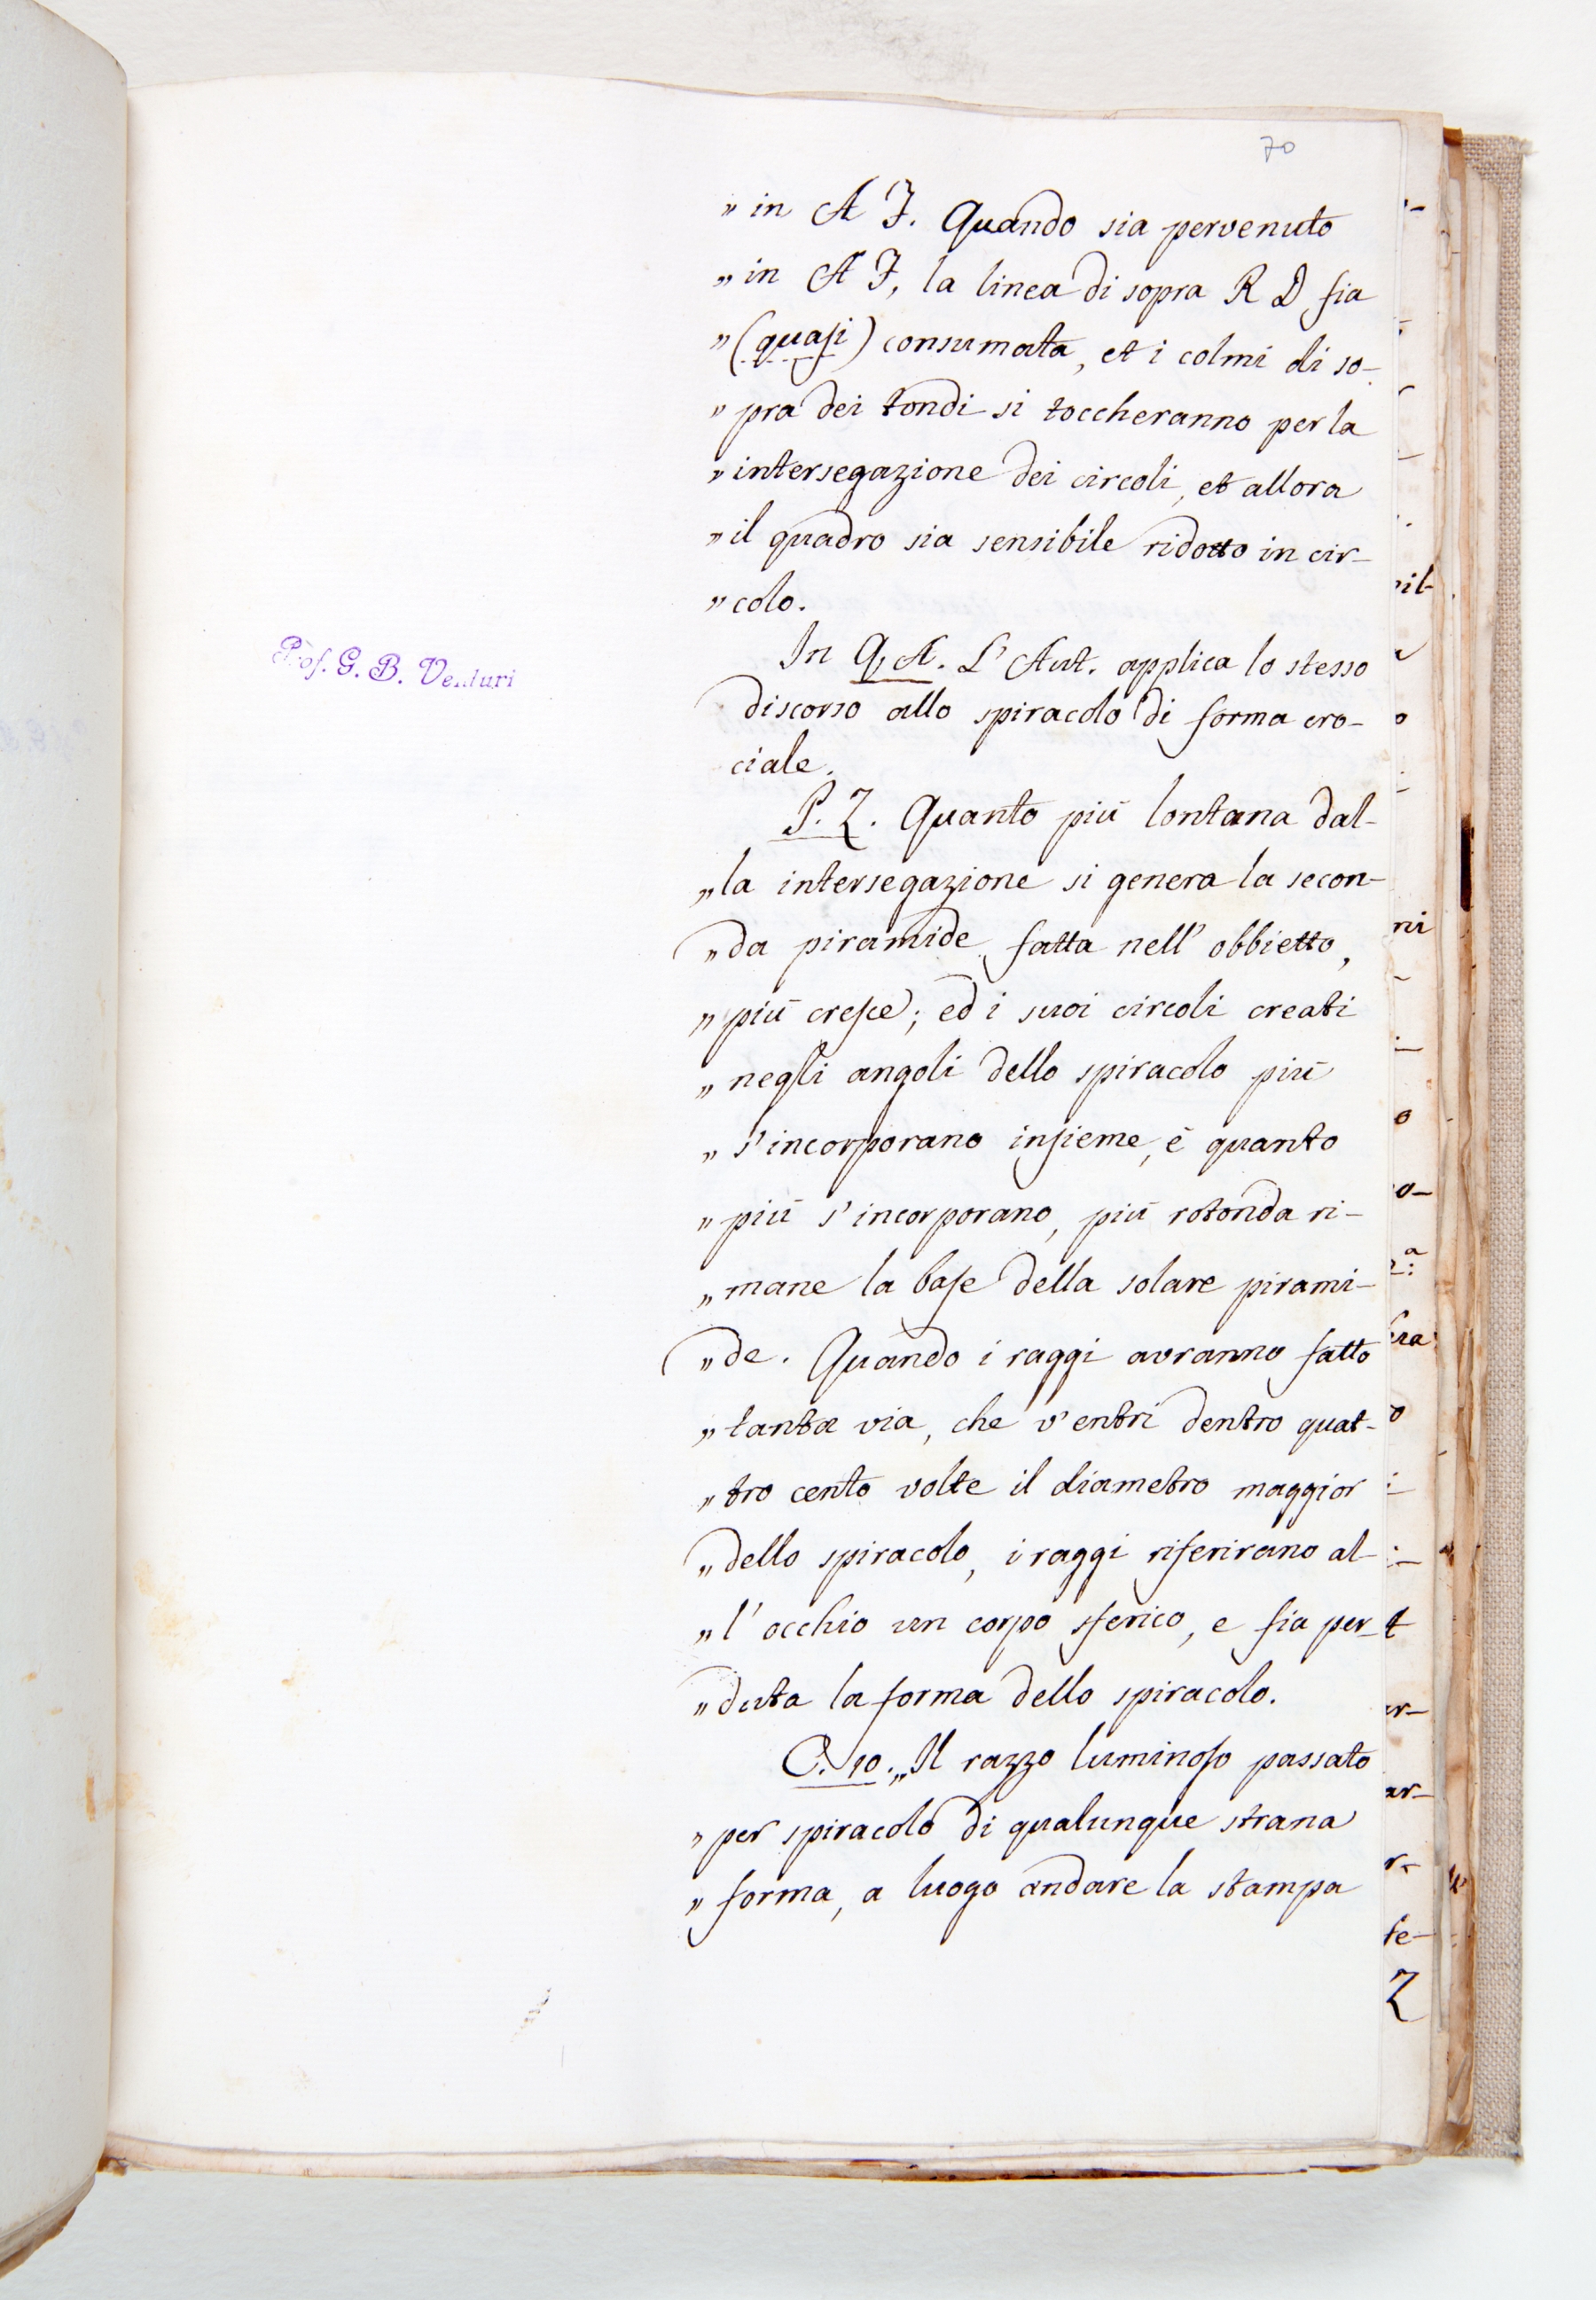 70
„ in A F. Quando sia pervenuto
„ in A F, la linea di sopra R D fia
„ (quasi) consumata, et i colmi di so-
„ pra dei tondi si toccheranno per la
„ intersegazione dei circoli, et allora
„ il quadro sia sensibile ridotto in cir-
„ colo.
In Q, A. L' Aut. applica lo stesso
discorso allo spiracolo di forma cro-
ciale.
P. Z. Quanto più lontana dal-
„ la intersegazione si genera la secon-
„ da piramide fatta nell' obbietto,
„ più cresce; ed i suoi circoli creati
„ negli angoli dello spiracolo più
„ s'incorporano insieme, è quanto
„ più s'incorporano, più rotonda ri-
„ mane la base della solare pirami-
„ de. Quando i raggi avranno fatto
„ tanta via, che v'entri dentro quat-
„ tro cento volte il diametro maggior
„ dello spiracolo, i raggi riferirano al-
„ l' occhio un corpo sferico, e fia per-
„ duta la forma dello spiracolo.
C. 10. „ Il razzo luminoso passato
„ per spiracolo di qualunque strana
„ forma, a luogo andare la stampa
Prof. G. B. Venturi